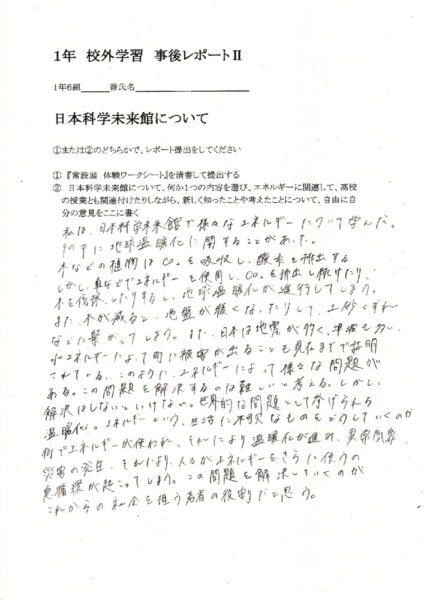 1年 校外学習 事後レポートⅡ
1年6組______番氏名____________________
日本科学未来館について
①または②のどちらかで、レポート提出をしてください
① 『常設展 体験ワークシート』を清書して提出する
② 日本科学未来館について、何か1つの内容を選び、エネルギーに関連して、高校
の授業とも関連付けたりしながら、新しく知ったことや考えたことについて、自由に自
分の意見をここに書く
私は、日本科学未来館で様々なエネルギーについて学んだ。
その中に地球温暖化に関することがあった。
木などの植物はCO₂を吸収し、酸素を排出する
しかし、車などでエネルギーを使用し、CO₂を排出し続けたり、
木を伐採したりすると、地球温暖化が進行してしまう。
また、木が減ると、地盤が緩くなったりして、土砂くずれ
などに繋がってしまう。また、日本は地震が多く、津波も
水エネルギーによって町に被害が出ることも現在までで証明
されている。このように、エネルギーによって様々な問題が
ある。この問題を解決するのは難しいと考える。しかし、
解決はしないといけない。世界的な問題として挙げられる
温暖化。エネルギーという、生活に不可欠なものをどうしていくのか
術でエネルギーが使われ、それにより温暖化が進み、異常気象、
災害の発生、それにより、人々がエネルギーをさらに使うの
悪循環が起こってしまう。この問題を解決していくのが
これからの社会を担う若者の役割だと思う。